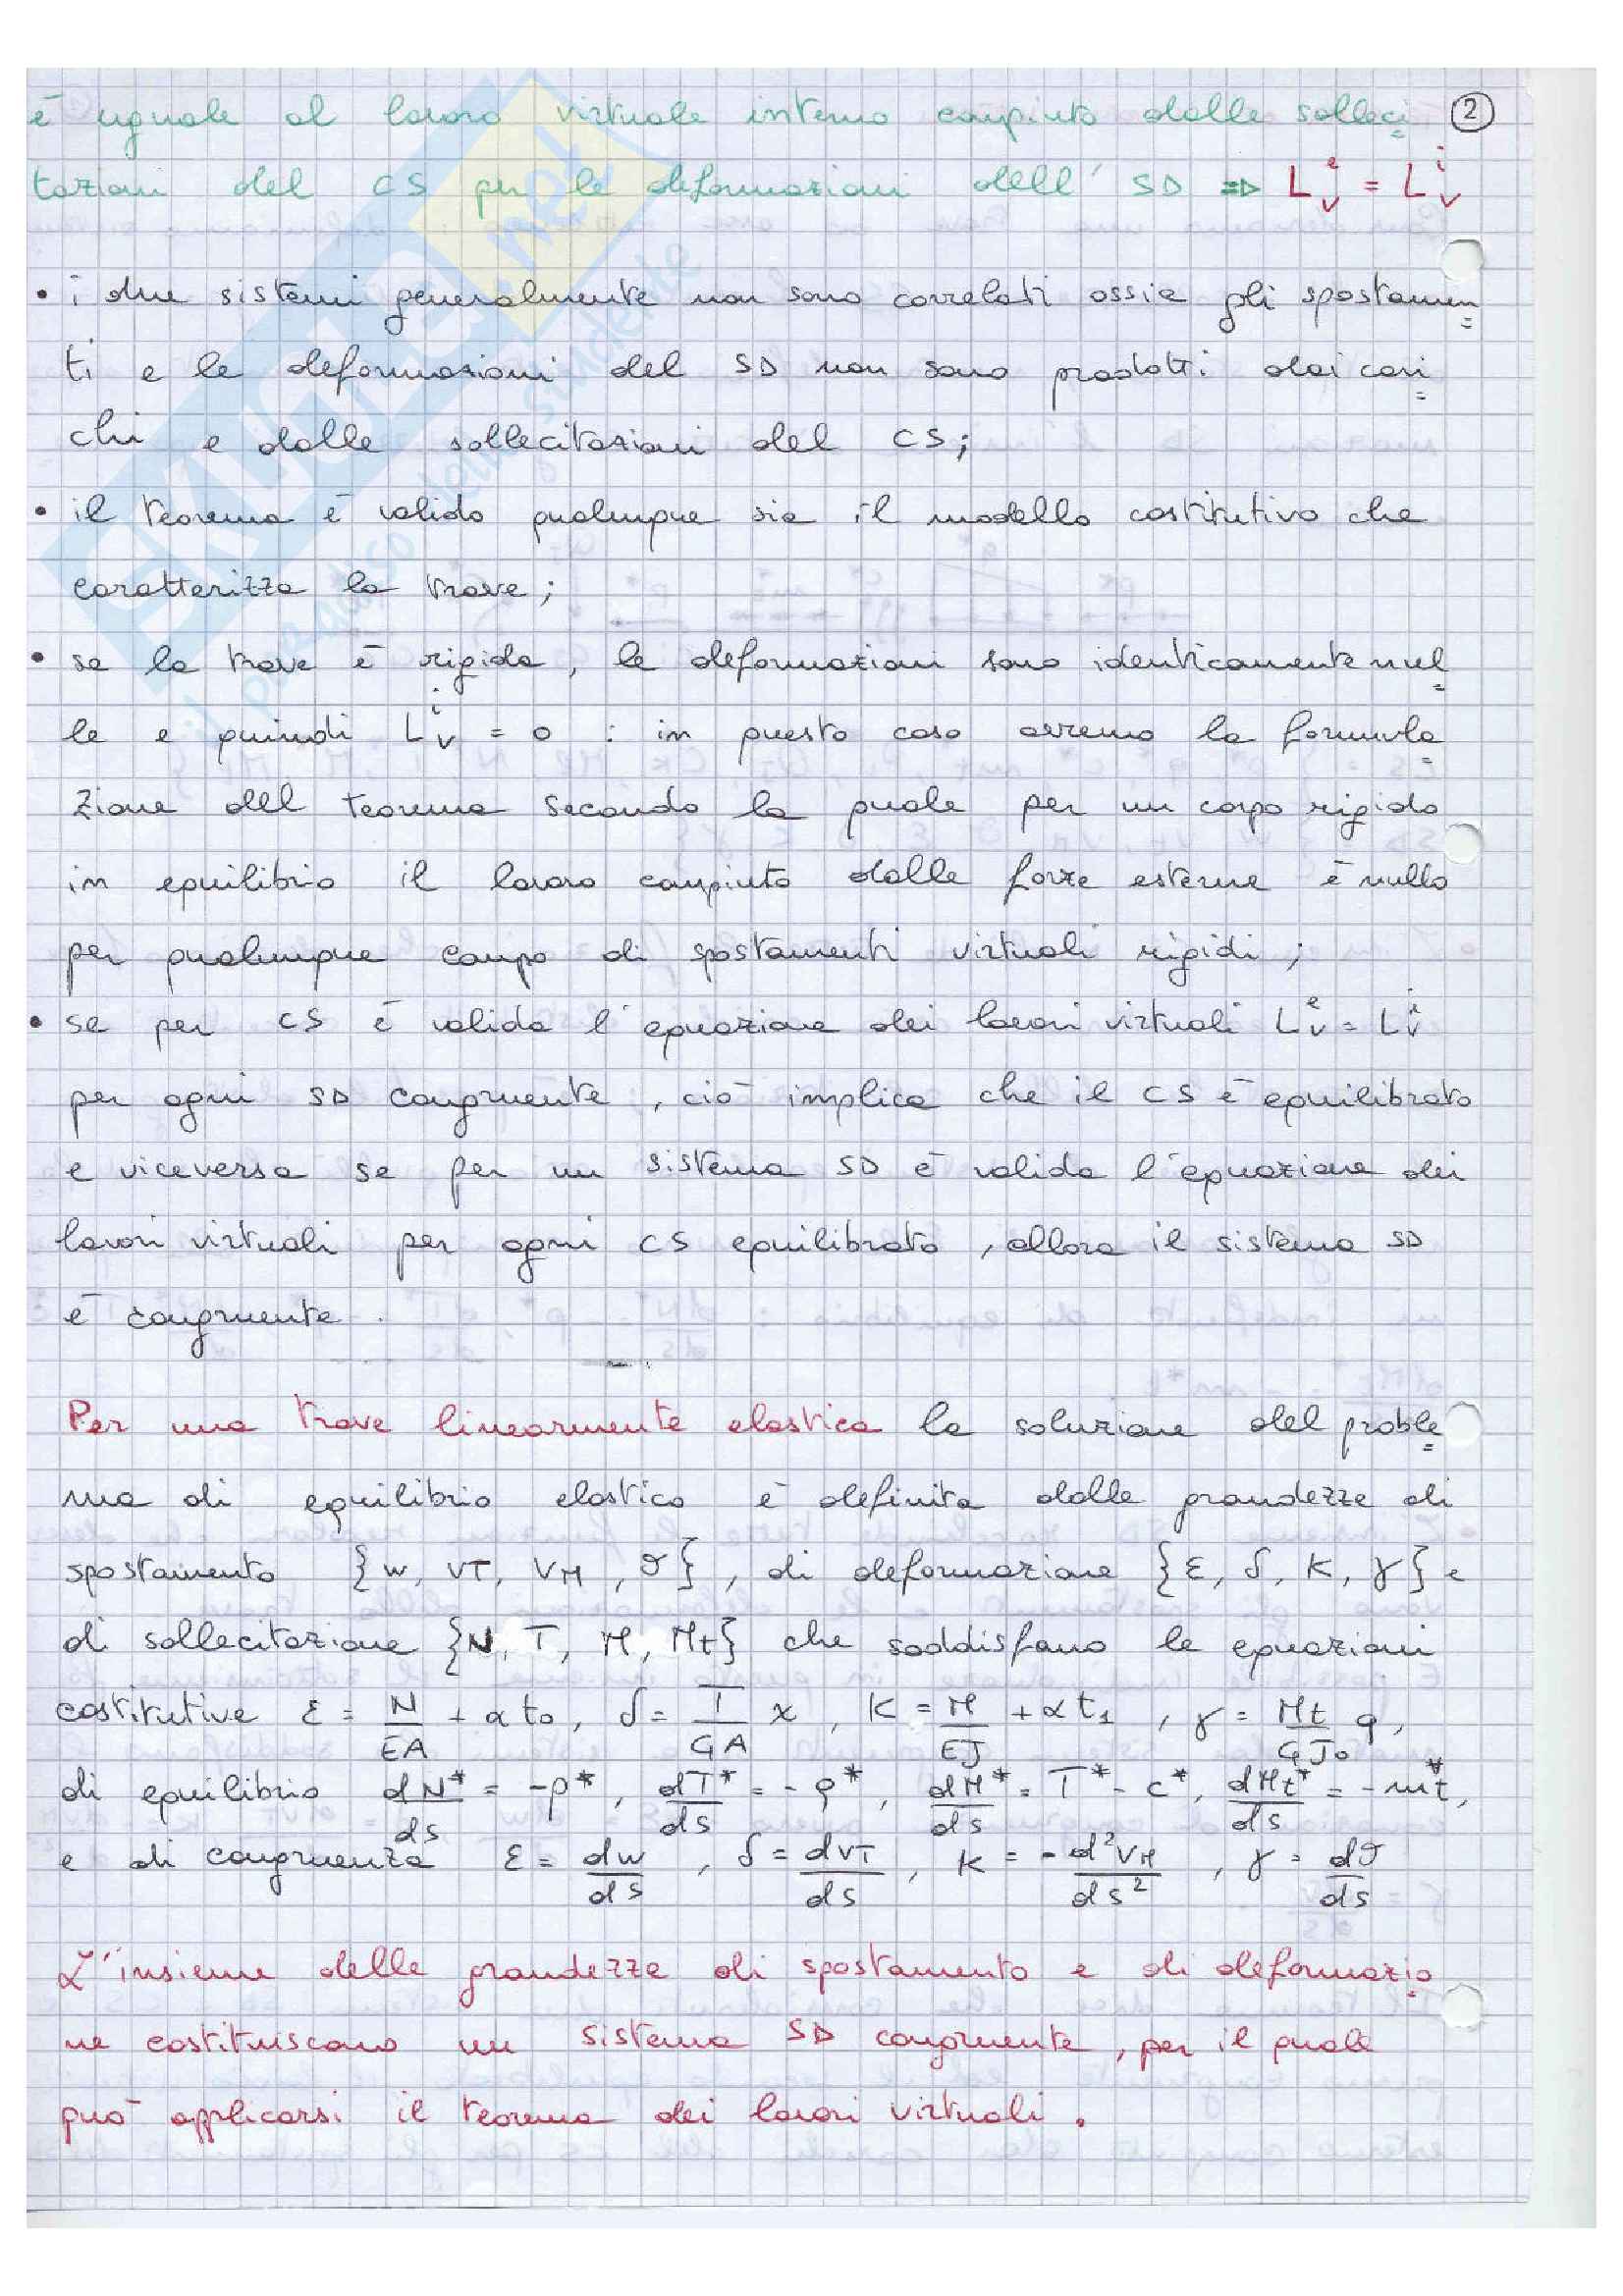 è uguale al lavoro virtuale interno compiuto dalle solleci 2
tazioni del CS per le deformazioni dell' SD => Lᵥᵉ = Lᵥⁱ
• i due sistemi generalmente non sono correlati ossia gli spostamen
ti e le deformazioni del SD non sono prodotti dai cari
chi e dalle sollecitazioni del CS;
• il teorema è valido qualunque sia il modello costitutivo che
caratterizza la trave;
• se la trave è rigida, le deformazioni sono identicamente nul
le e quindi Lᵥⁱ = 0 : in questo caso avremo la formula
zione del teorema secondo la quale per un corpo rigido
in equilibrio il lavoro compiuto dalle forze esterne è nullo
per qualunque campo di spostamenti virtuali rigidi;
• se per CS è valida l'equazione dei lavori virtuali Lᵥᵉ = Lᵥⁱ
per ogni SD congruente, ciò implica che il CS è equilibrato
e viceversa se per un sistema SD è valida l'equazione dei
lavori virtuali per ogni CS equilibrato, allora il sistema SD
è congruente.
Per una trave linearmente elastica la soluzione del proble
ma di equilibrio elastico è definita dalle grandezze di
spostamento {w, vT, vM, ϑ}, di deformazione {ε, δ, K, γ} e
di sollecitazione {N, T, M, Mt} che soddisfano le equazioni
costitutive ε = N/EA + αt₀, δ = T/GA χ, K = M/EJ + αt₁, γ = Mt/GJ₀ q,
di equilibrio dN*/ds = -p*, dT*/ds = -q*, dM*/ds = T* - c*, dMt*/ds = -mt*,
e di congruenza ε = dw/ds, δ = dvT/ds, K = -d²vM/ds², γ = dϑ/ds
L'insieme delle grandezze di spostamento e di deformazio
ne costituiscono un sistema SD congruente, per il quale
può applicarsi il teorema dei lavori virtuali.